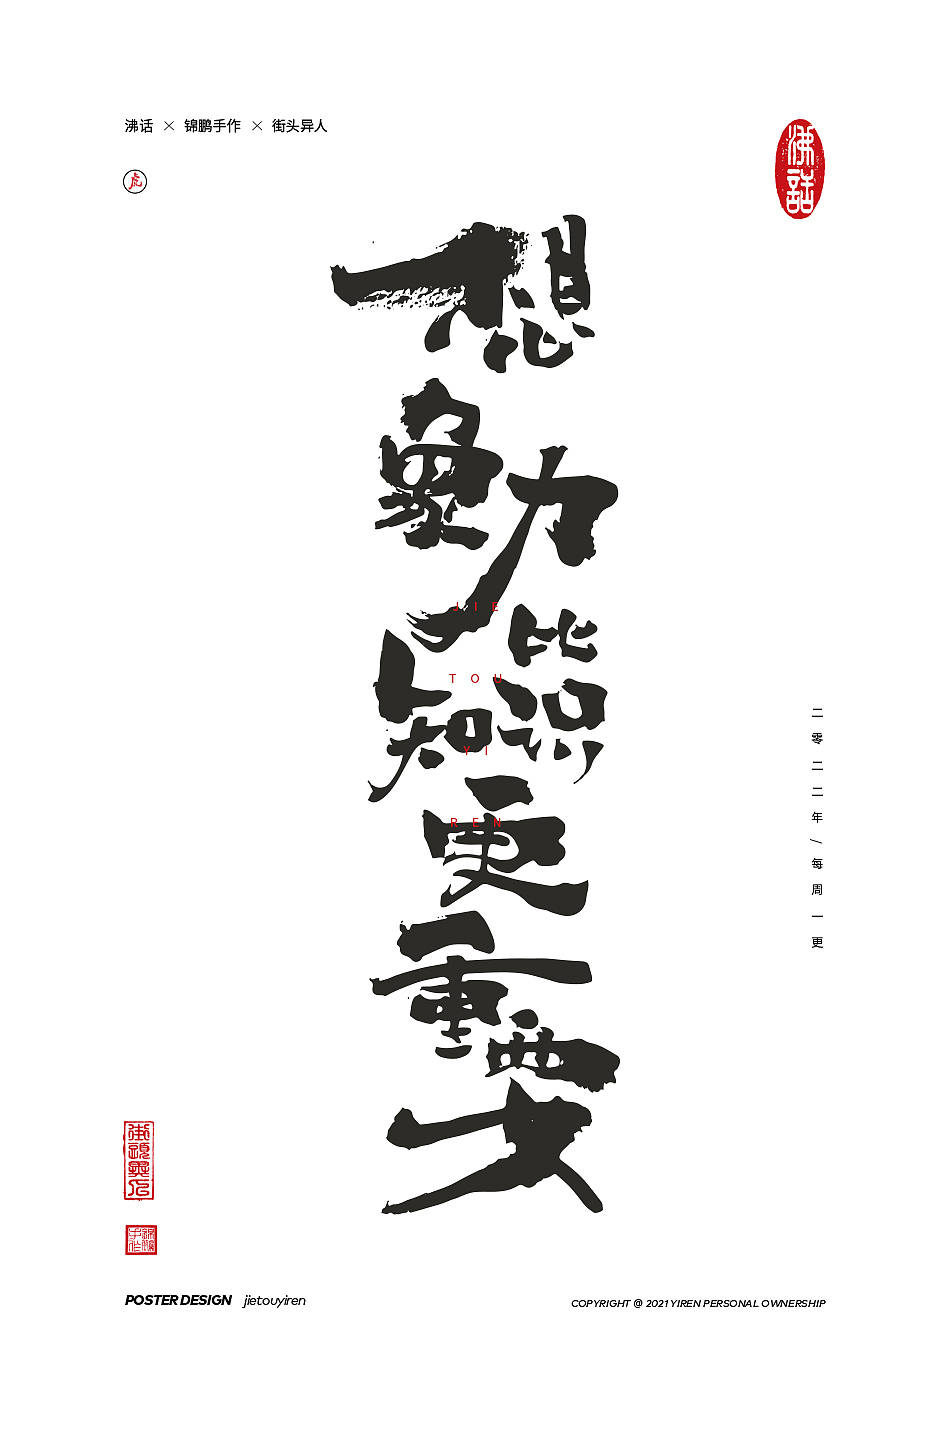 沸话 × 锦鹏手作 × 街头异人
虎
沸話
想象力比知识更重要
JIE
TOU
YI
REN
二零二二年/每周一更
街頭異人
POSTER DESIGN jietouyiren
COPYRIGHT @ 2021 YIREN PERSONAL OWNERSHIP